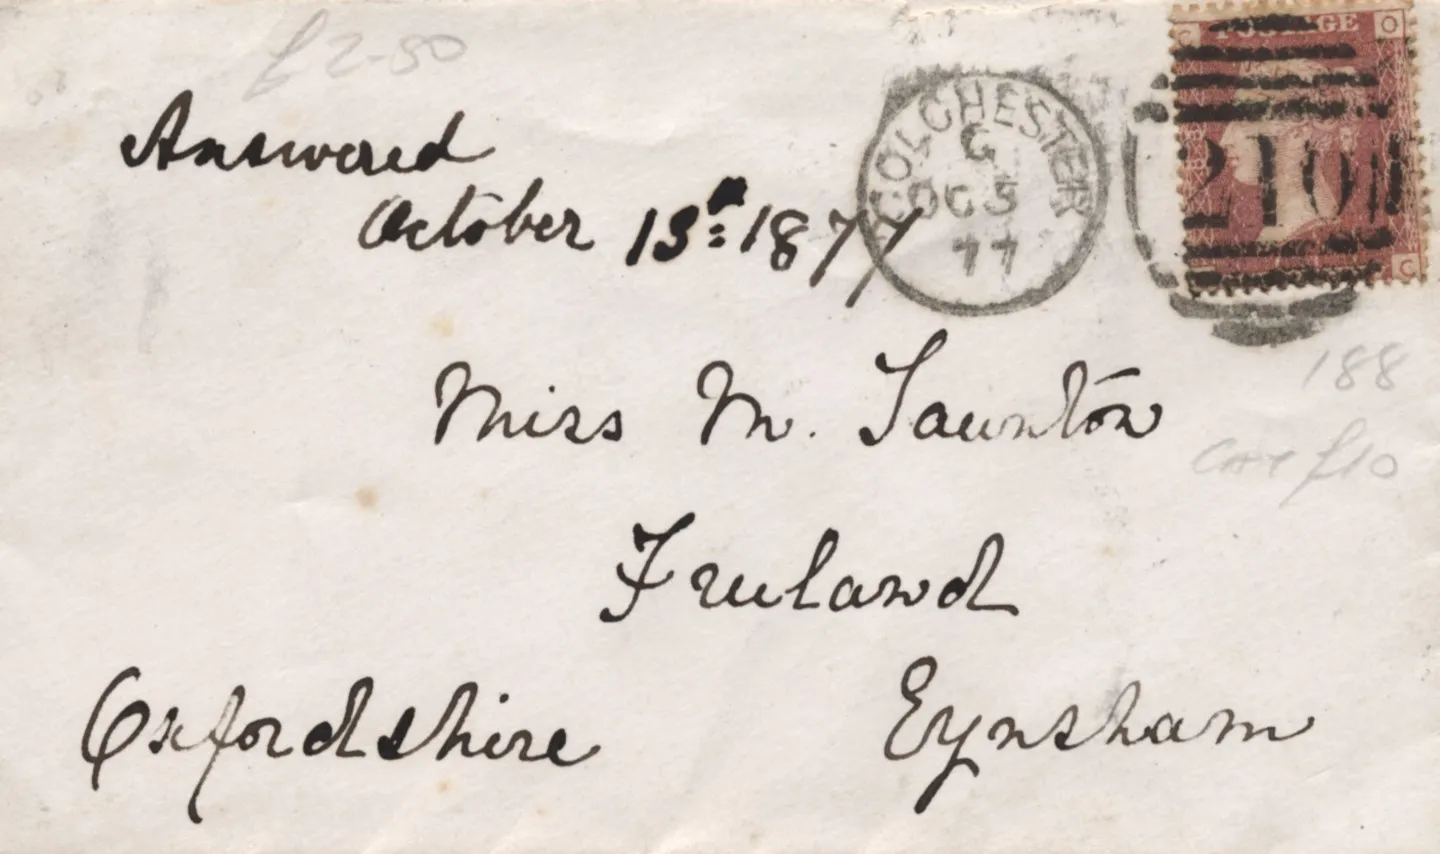 £2-50
Answered
October 13th 1877
COLCHESTER
G
OC 5
77
POSTAGE
C O
O C
210
188
Cat £10
Miss M. Taunton
Freeland
Eynsham
Oxfordshire